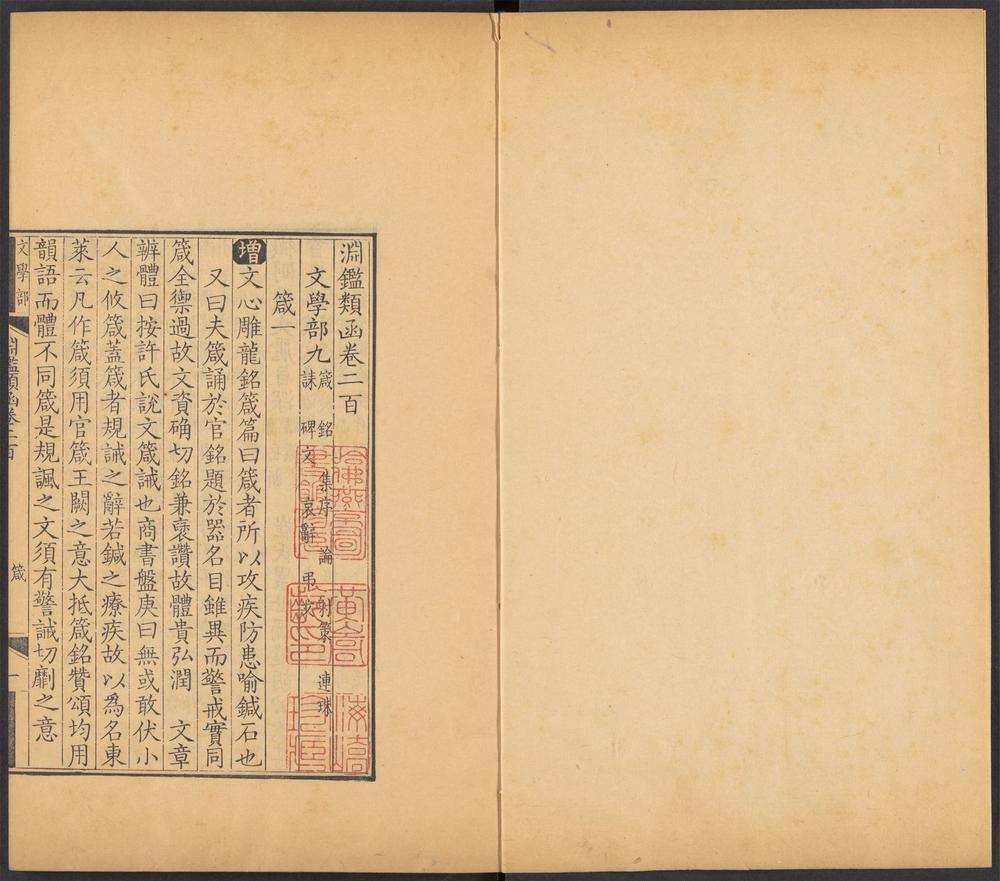 淵鑑類函卷二百
文學部九 箴 銘 集序 論 射策 連珠
誄 碑文 哀辭 弔文
箴一
增文心雕龍銘箴篇曰箴者所以攻疾防患喻鍼石也
又曰夫箴誦於官銘題於器名目雖異而警戒實同
箴全禦過故文資确切銘兼褒讚故體貴弘潤 文章
辨體曰按許氏說文箴誡也商書盤庚曰無或敢伏小
人之攸箴蓋箴者規誡之辭若鍼之療疾故以爲名東
萊云凡作箴須用官箴王闕之意大抵箴銘贊頌均用
韻語而體不同箴是規諷之文須有警誡切劘之意
文學部
淵鑑類函卷二百
箴
一
哈佛燕京
黃
珍藏